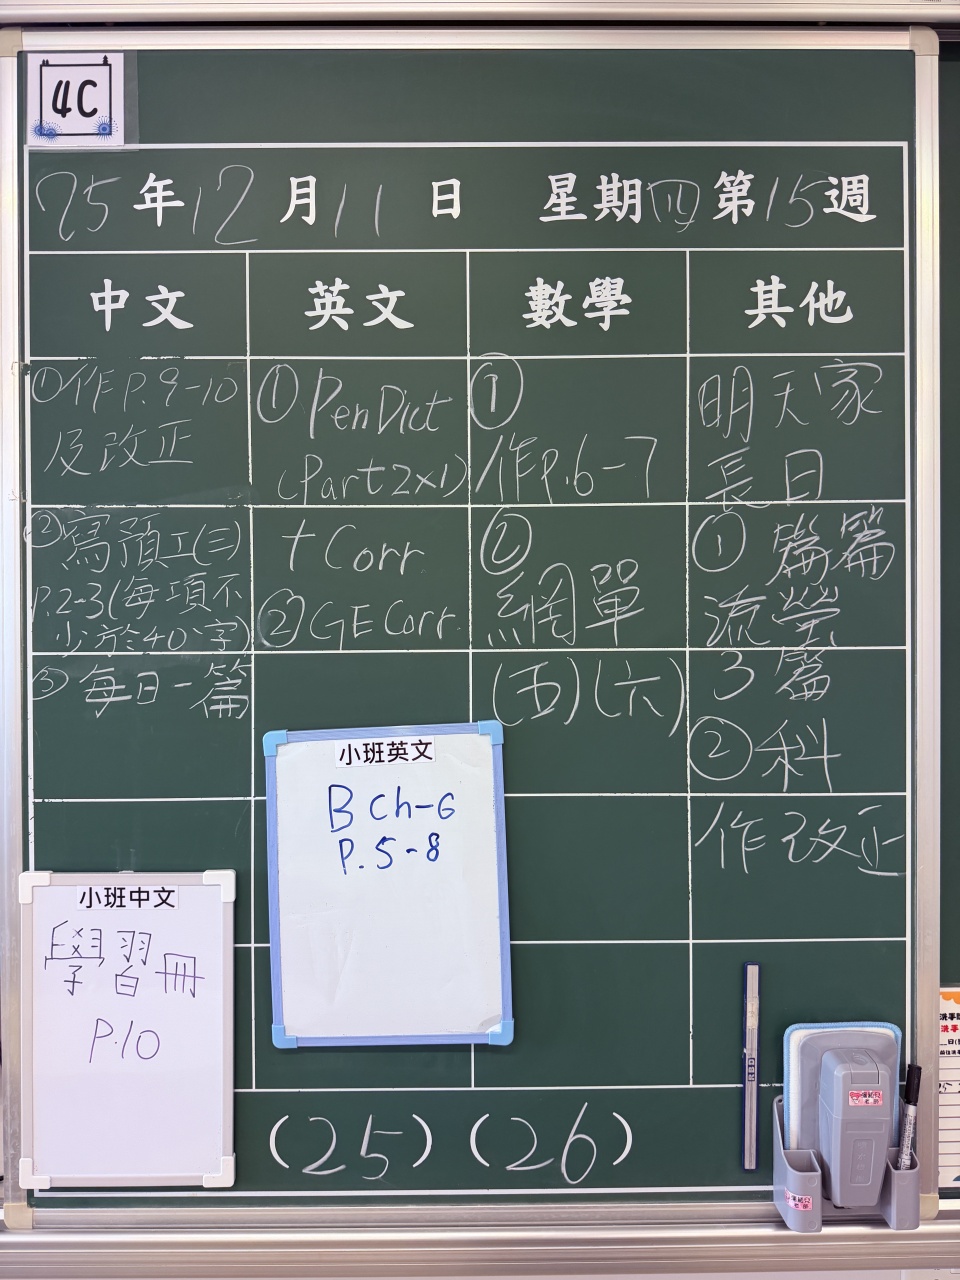 4C
25年12月11日 星期四 第15週
中文 英文 數學 其他
①作P.9-10
及改正
②寫預工(三)
P.2-3(每項不
少於40字)
③每日一篇
①PenDict
(Part2x1)
+Corr.
②GE Corr.
①
作P.6-7
②
網單
(五)(六)
明天家
長日
①篇篇
流螢
3篇
②科
作改正
小班英文
B Ch-6
P.5-8
小班中文
學習冊
P.10
(25)(26)